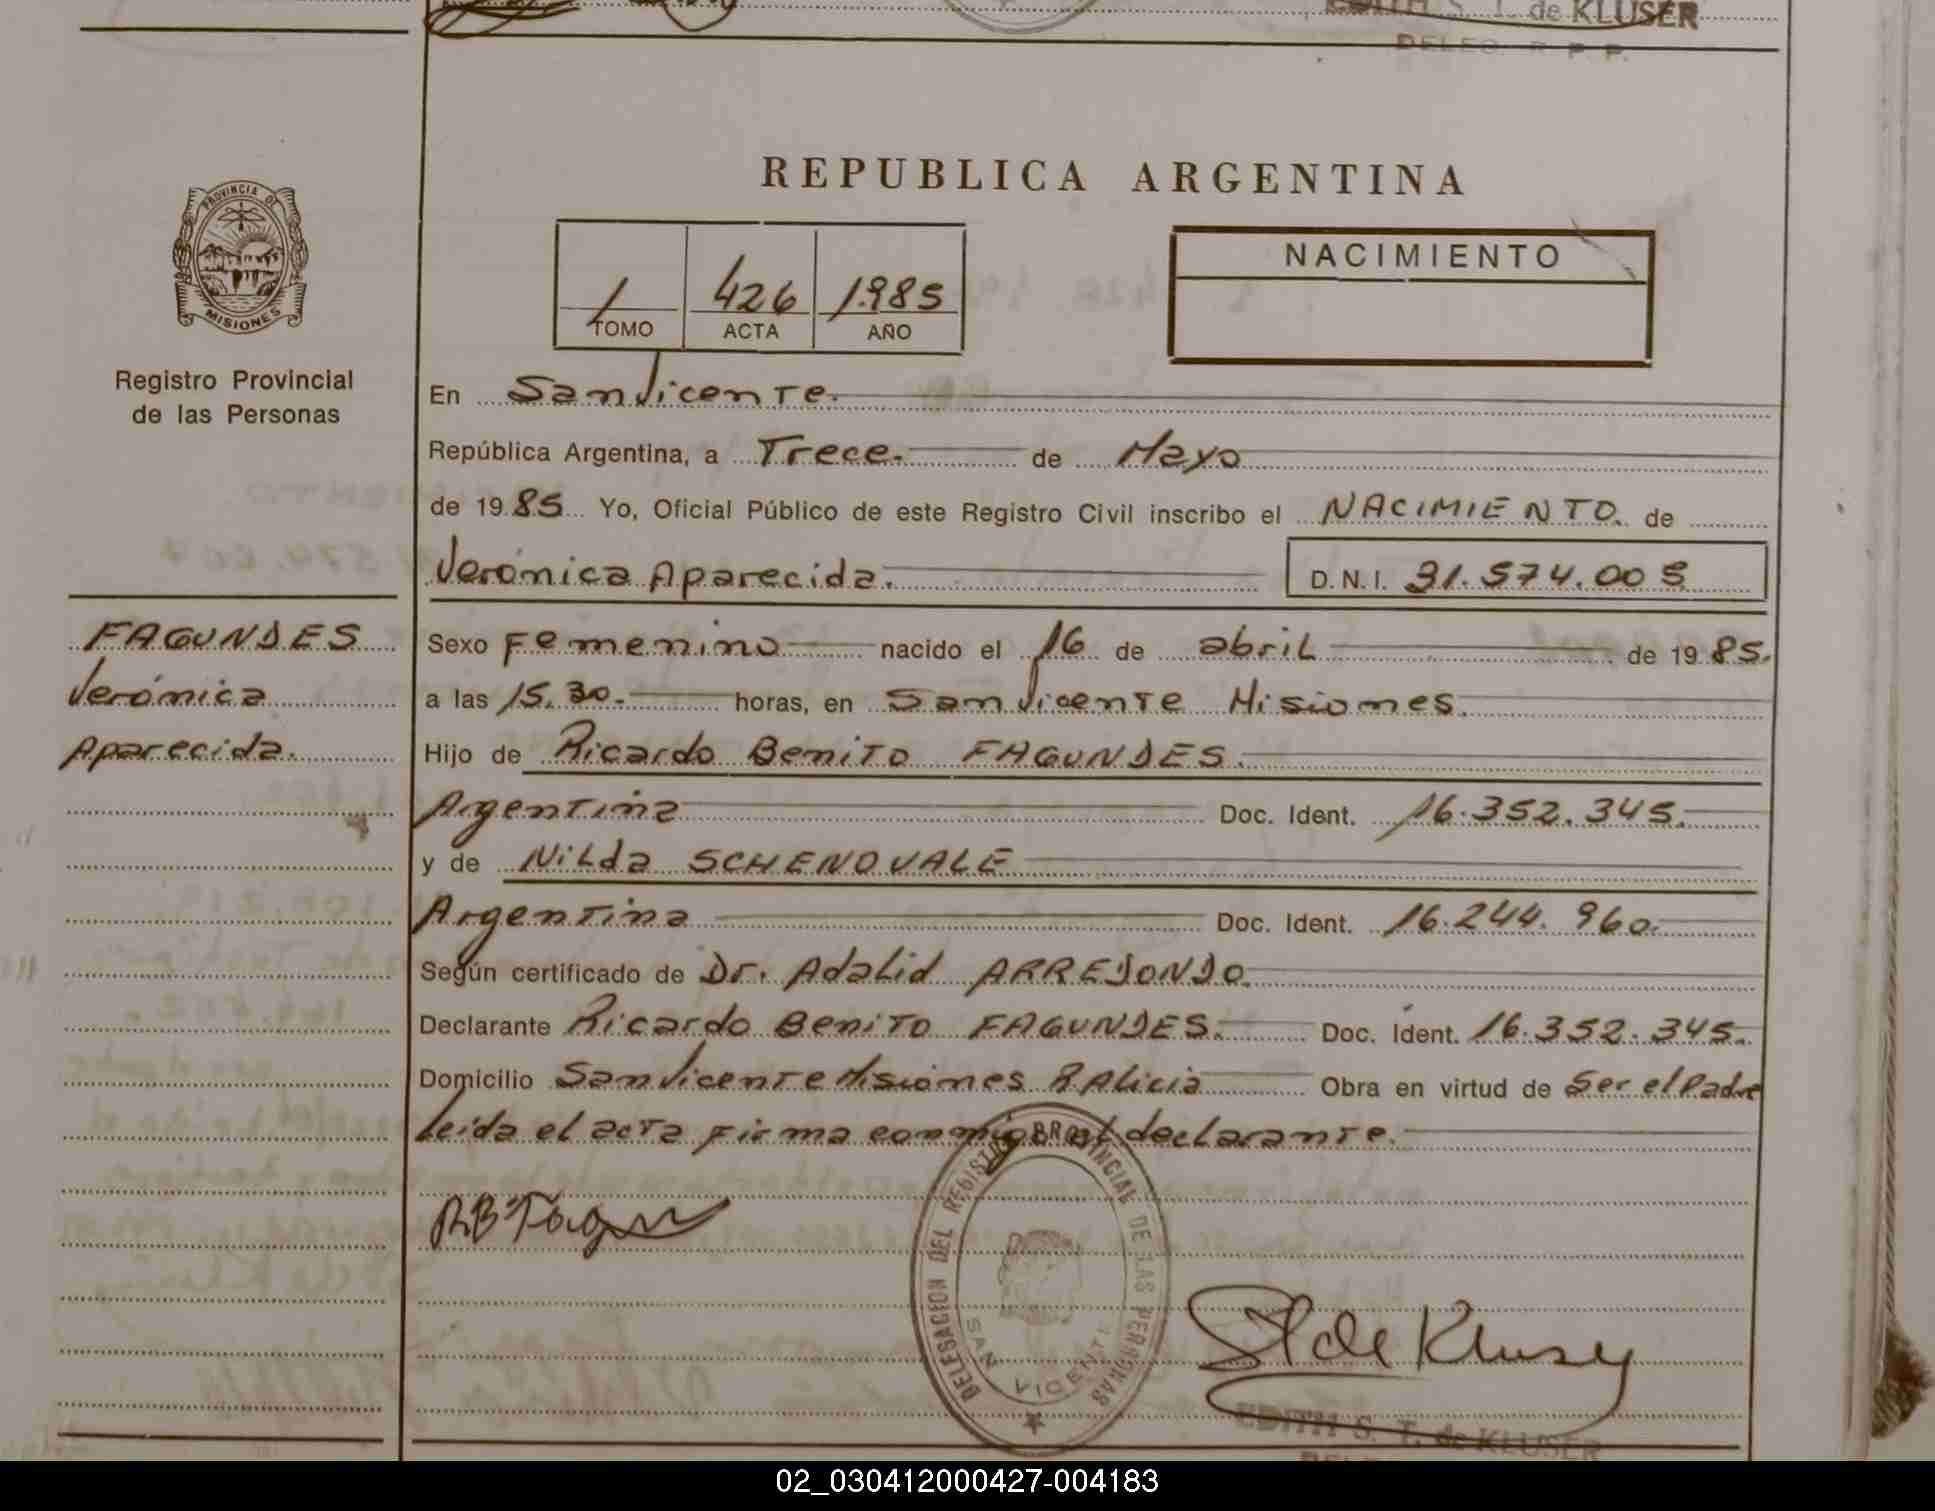 de KLUSER
DELEG. R. P. P.
REPUBLICA ARGENTINA
PROVINCIA DE
MISIONES
Registro Provincial
de las Personas
1 426 1.985
TOMO ACTA AÑO
NACIMIENTO
En San Vicente.
República Argentina, a Trece. de Mayo
de 1985 Yo, Oficial Público de este Registro Civil inscribo el NACIMIENTO. de
Verónica Aparecida. D.N.I. 31.574.005
FAGUNDES
Verónica
Aparecida.
Sexo Femenino nacido el 16 de abril de 1985.
a las 15.30. horas, en San Vicente Misiones.
Hijo de Ricardo Benito FAGUNDES.
Argentina Doc. Ident. 16.352.345.
y de Nilda SCHENOVALE
Argentina Doc. Ident. 16.244.960.
Según certificado de Dr. Adalid ARREDONDO.
Declarante Ricardo Benito FAGUNDES. Doc. Ident. 16.352.345.
Domicilio San Vicente Misiones Alicia Obra en virtud de Ser el Padre
Leida el acta firma conmigo el declarante.
DELEGACION DEL REGISTRO PROVINCIAL DE LAS PERSONAS
SAN VICENTE
de Kluser
EDITH S. T. de KLUSER
02_030412000427-004183